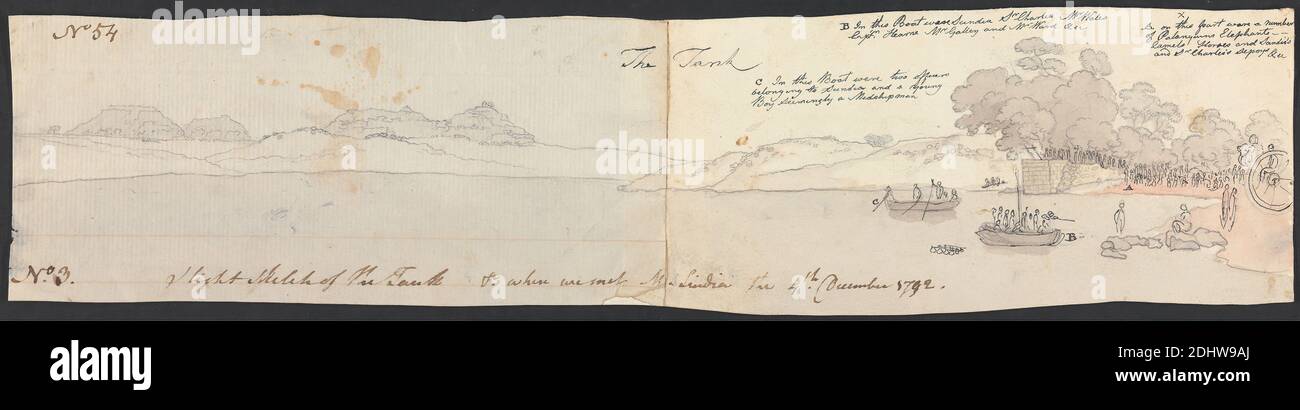 No 54
B In this Boat were Sundia Sr Charles Mr Wales
Captn Hearne Mr Galley and Mr Ward &c
X
& on this part were a number
of Palanquins Elephants —
Camels Horses and Sundia's
and Sr Charles's Sepoys &c
The Tank
C In this Boat were two officers
belonging to Sundia and a young
Boy seemingly a Midshipman
A
C
B
No 3. Slight Sketch of the Tank & where we met Sindia the 4th December 1792.
alamy
Image ID: 2DHW9AJ
www.alamy.com